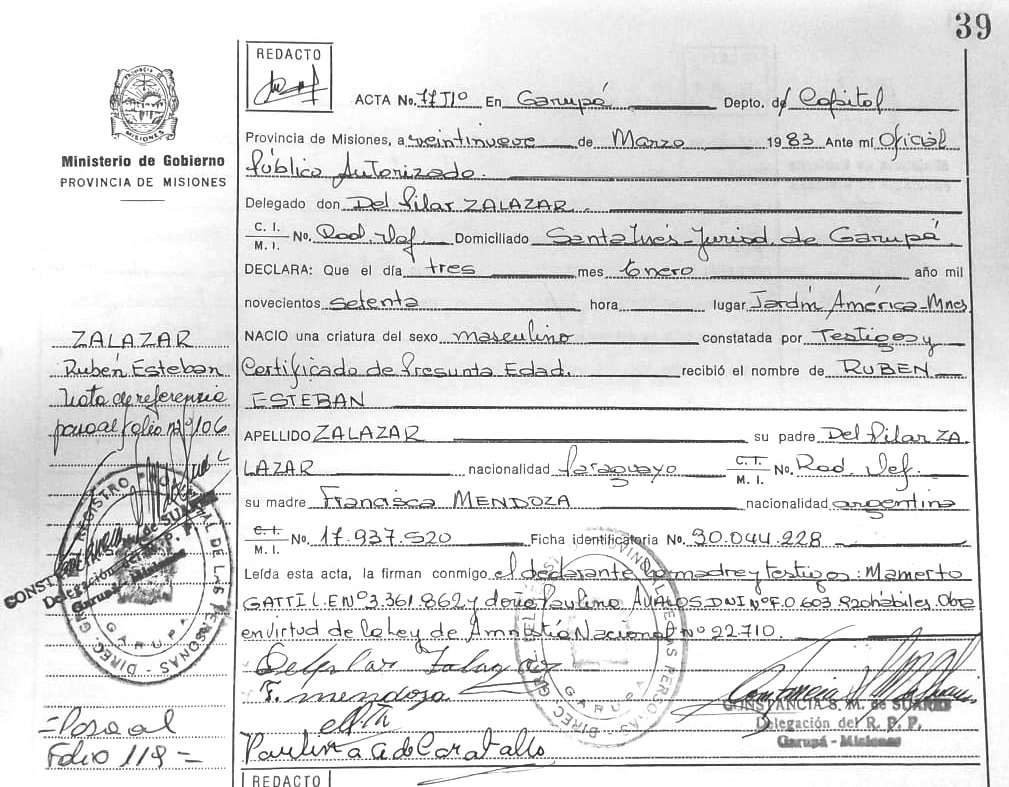 39
REDACTO
PROVINCIA DE MISIONES
Ministerio de Gobierno
PROVINCIA DE MISIONES
ACTA No. En Garupá Depto. de Capital
Provincia de Misiones, a veintinueve de Marzo 1983 Ante mi Oficial
Público Autorizado.
Delegado don Del Pilar ZALAZAR.
C. I.
M. I. No. Rad. Def. Domiciliado Santa Inés - Jurisd. de Garupá.
DECLARA: Que el día tres mes Enero año mil
novecientos setenta hora lugar Jardín América - Mnes
NACIO una criatura del sexo masculino constatada por Testigos y
Certificado de Presunta Edad. recibió el nombre de RUBEN
ESTEBAN
APELLIDO ZALAZAR su padre Del Pilar ZA
LAZAR nacionalidad Paraguayo C. I.
M. I. No. Rad. Def.
su madre Francisca MENDOZA nacionalidad argentina
C. I.
M. I. No. 17.937.520 Ficha identificatoria No. 30.044.228
Leída esta acta, la firman conmigo el declarante, la madre y testigos: Mamerto
GATTI L.E Nº 3.361.862 y doña Paulina AVALOS DNI Nº F.0.603.920 hábiles. Obra
en virtud de la Ley de Amnistía Nacional Nº 22.710.
F. mendoza
Paulina A de
CONSTANCIA S. M. de SUAREZ
Delegación del R. P. P.
Garupá - Misiones
REDACTO
ZALAZAR
Rubén Esteban
Nota de referencia
pasa al folio nº 106
REGISTRO PROVINCIAL DE LAS PERSONAS - DIREC. GRAL.
GARUPA
CONSTANCIA S. M. de SUAREZ
Delegación del R. P. P.
Garupá - Misiones
= Pasa al
Folio 119 =